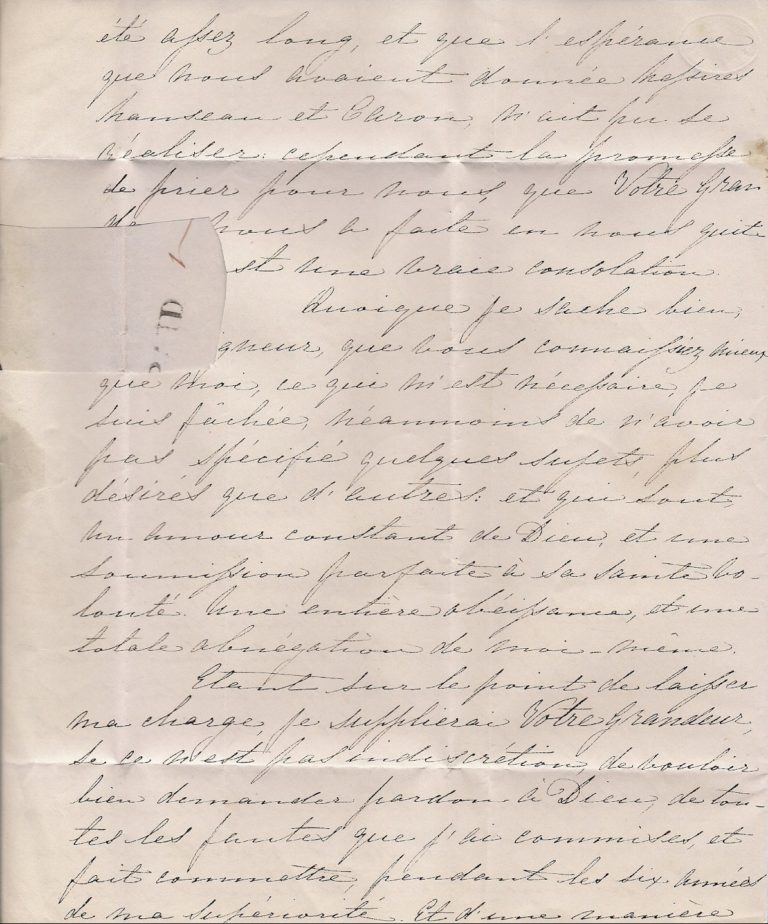 été assez long, et que l'espérance
que nous avaient donnée Messires
Manseau et Caron, n'ait pu se
réaliser: cependant la promesse
de prier pour nous, que Votre Gran
nous a faite en nous quit
st une vraie consolation.
Quoique je sache bien,
igneur, que vous connaissiez mieux
que moi, ce qui m'est nécessaire, je
suis fâchée, néanmoins de n'avoir
pas spécifié quelques sujets, plus
désirés que d'autres: et qui sont,
un amour constant de Dieu, et une
soumission parfaite à sa sainte vo-
lonté. Une entière obéissance, et une
totale abnégation de moi-même.
Etant sur le point de laisser
ma charge, je supplierai Votre Grandeur,
se ce n'est pas indiscrétion, de vouloir
bien demander pardon à Dieu, de tou-
tes les fautes que j'ai commises, et
fait commettre, pendant les six années
de ma supériorité. Et d'une manière